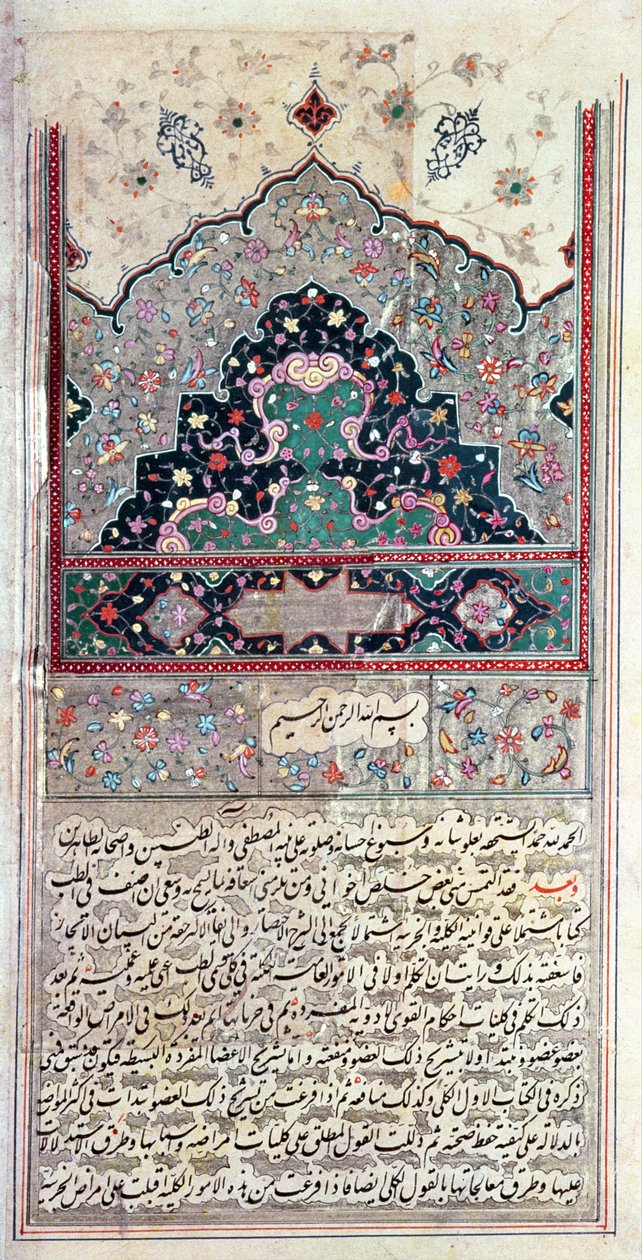 بسم الله الرحمن الرحيم
الحمد لله حمدا يستحقه بعلو شانه وسبوغ احسانه وصلوته على نبيه المصطفى واله الطيبين واصحابه الطاهرين
وبعد فقد التمس منى بعض خلص اخوانى ومن يلزمنى اسعافه بما يسمح به وسعى ان اصنف فى الطب
كتابا مشتملا على قوانينه الكلية والجزئية اشتمالا يجمع الى الشرح الاختصار والى ايفاء الاكثر حقه من البيان الايجاز
فاسعفته بذلك ورايت ان اتكلم اولا فى الامور العامة الكلية فى كلى قسمى الطب اعنى علميه وعمليه ثم بعد
ذلك اتكلم فى كليات احكام القوى الادوية المفردة ثم فى جزئياتها ثم بعد ذلك فى الامراض الواقعة
بعضو عضو فابتدى اولا بتشريح ذلك العضو ومنفعته واما تشريح الاعضا المفردة البسيطة فيكون قد سبق منى
ذكره فى الكتاب الاول الكلى وكذلك منافعه ثم اذا فرغت من تشريح ذلك العضو ابتدات فى اكثر المواضع
بالدلالة على كيفية حفظ صحته ثم دللت القول المطلق على كليات امراضه واسبابها وطرق الاستدلالات
عليها وطرق معالجاتها بالقول الكلى ايضا فاذا فرغت من هذه الامور الكلية اقبلت على امراض الجزئية